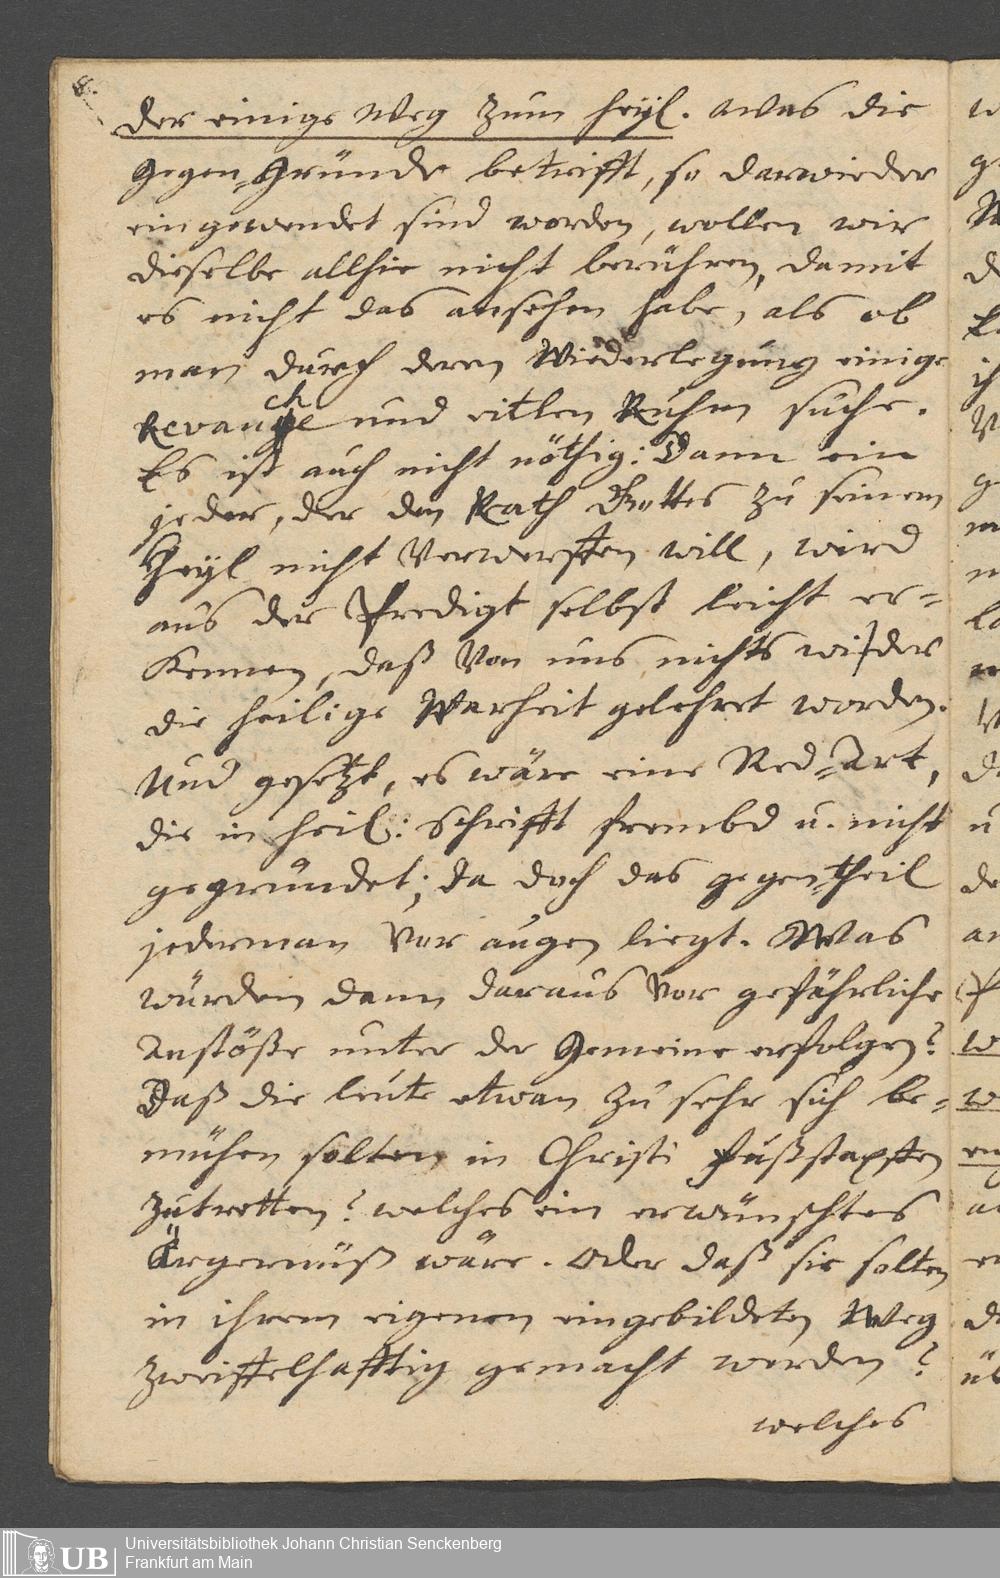 8.
der einige Weg zum heyl. Was die
gegen-Gründe betrifft, so darwieder
eingewendet sind worden, wollen wir
dieselbe allhie nicht berühren, damit
es nicht das ansehen habe, als ob
man durch deren Wiederlegung einige
Revanche und eitlen Ruhm suche.
Es ist auch nicht nöthig: Dann ein
jeder, der den Rath Gottes zu seinem
Heyl nicht Verwerffen will, wird
aus der Predigt selbst leicht er-
kennen, daß Von uns nichts wieder
die heilige Warheit gelehret worden.
Und gesetzt, es wäre eine Red-Art,
die in heil: Schrifft frembd u. nicht
gegründet; da doch das gegentheil
jederman Vor augen liegt. Was
würden dann daraus Vor gefährliche
Anstöße unter der Gemeine erfolgen?
Daß die leute etwan zu sehr sich be-
mühen solten in Christi Fußstapffen
zutretten? welches ein erwünschtes
Ärgernüß wäre. Oder daß sie solten
in ihrem eigenen eingebildeten Weg
zweiffelhafftig gemacht werden?
welches
UB
Universitätsbibliothek Johann Christian Senckenberg
Frankfurt am Main